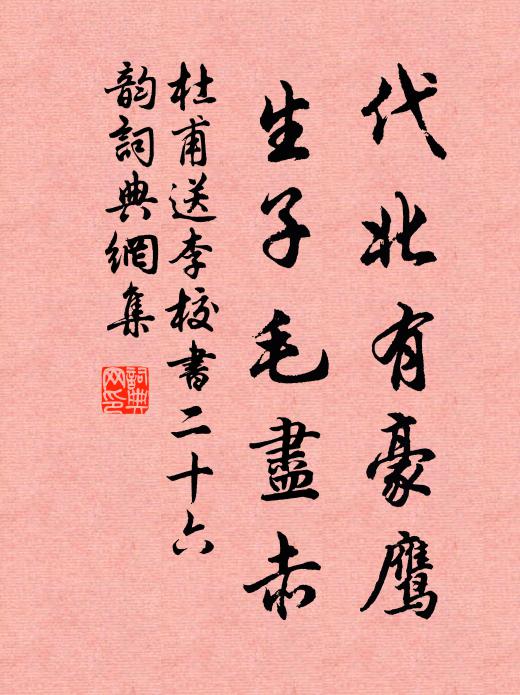 代北有豪鷹
生子毛盡赤
杜甫送李校書二十六
韵詞典網集
詞典
网印